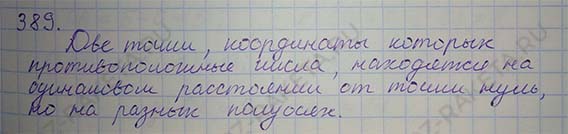 389.
Две точки, координаты которых
противоположные числа, находятся на
одинаковом расстоянии от точки нуль,
но на разных полуосях.